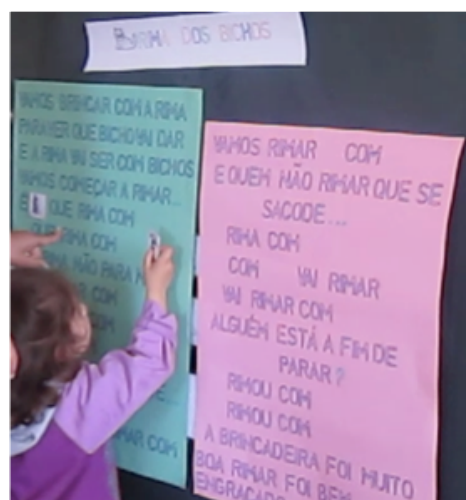 RIMA DOS BICHOS
VAMOS BRINCAR COM A RIMA
PARA VER QUE BICHO VAI DAR
E A RIMA VAI SER COM BICHOS
VAMOS COMEÇAR A RIMAR...
É QUE RIMA COM
QUE RIMA COM
RIMA NÃO PARA
COM
COM
E...
RIMAR COM
VAMOS RIMAR COM
E QUEM NÃO RIMAR QUE SE
SACODE...
RIMA COM
COM VAI RIMAR
VAI RIMAR COM
ALGUÉM ESTÁ A FIM DE
PARAR?
RIMOU COM
RIMOU COM
A BRINCADEIRA FOI MUITO
BOA RIMAR FOI BEM
ENGRAÇADO